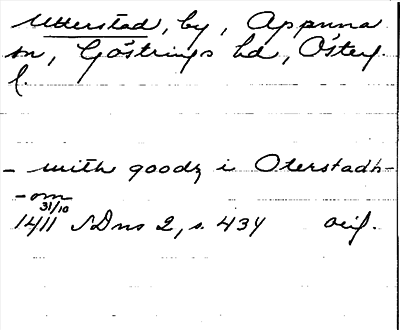 Utterstad, by, Appuna
sn, Göstrings hd, Österg.
l.
- with goodz i Oterstadh-
- om
31/10
1411 SDns 2, s. 434 orig.